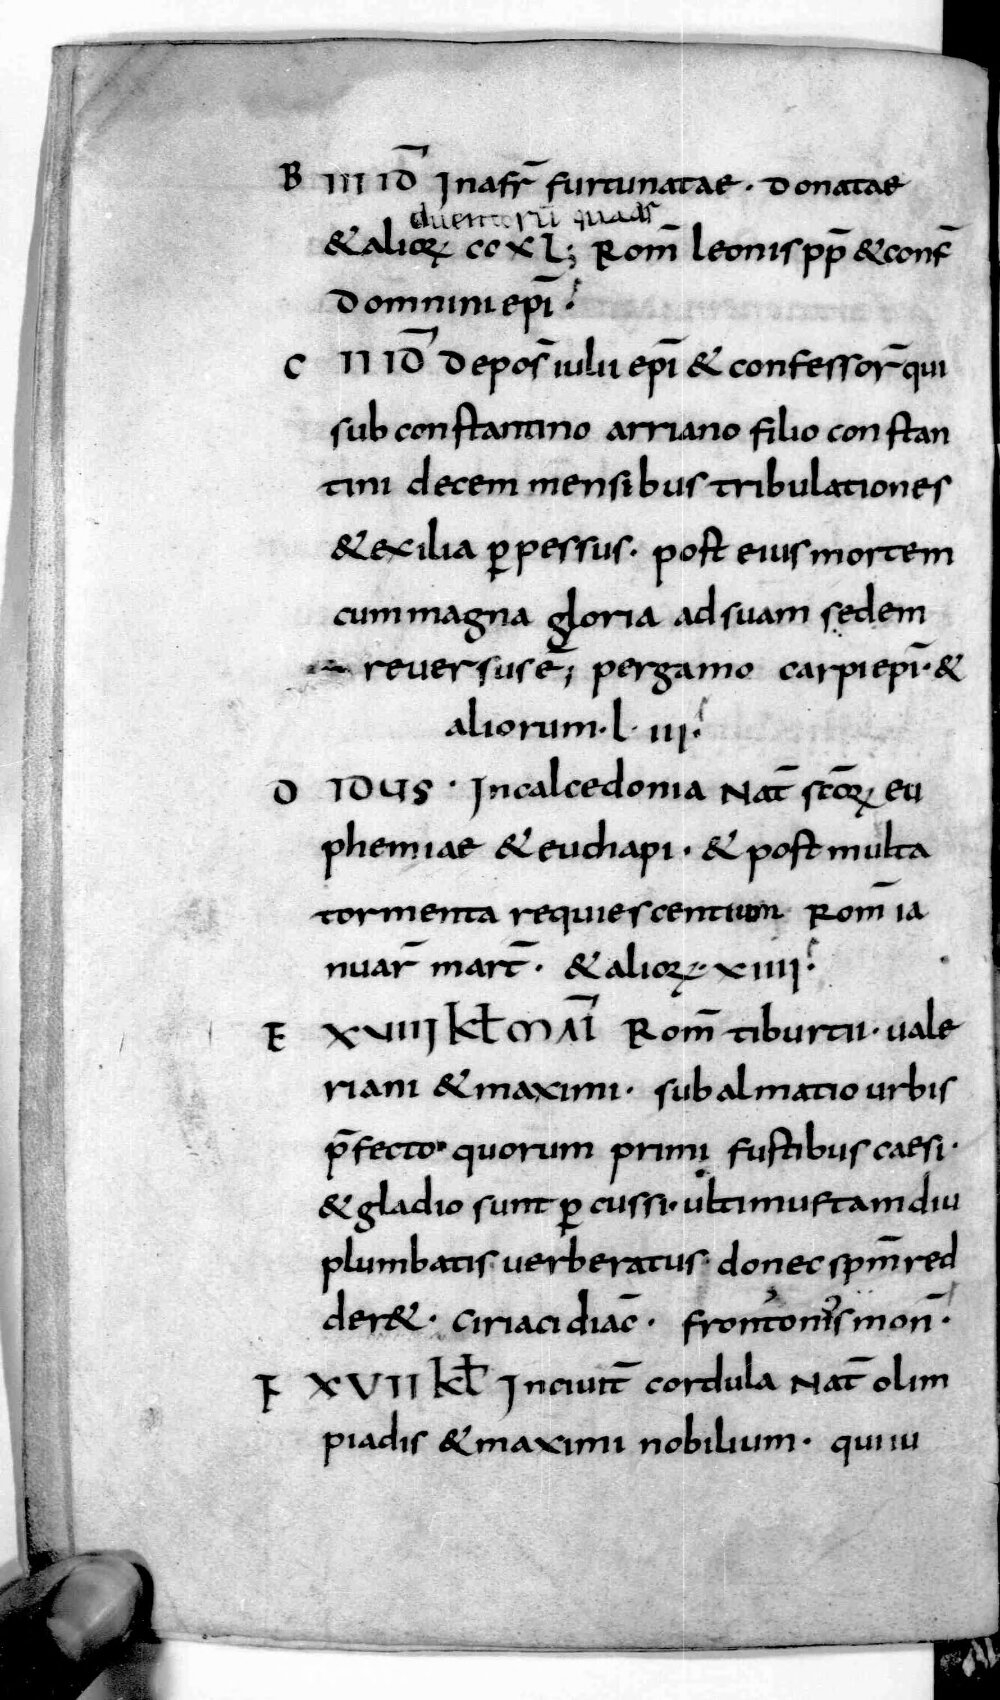 B III ID̄ Inafr̄ furtunatae · Donatae
ducentorū quadr
& alioꝝ ccxl; Rom̄ leonis pp̄ & conf̄
Domnini epī ·
C II ID̄ Depos̄ iulii epī & confessor̄ qui
sub constantino arriano filio constan
tini decem mensibus tribulationes
& exilia ꝑpessus · post eius mortem
cum magna gloria ad suam sedem
reversus ē; pergamo carpi epī · &
aliorum · l · III ·
D IDUS · In calcedonia Nat̄ sc̄oꝝ eu
phemiae & euchapi · & post multa
tormenta requiescentium Rom̄ ia
nuar̄ mart̄ · & alioꝝ · xiiii ·
E XVIII kƚ MAĪ Rom̄ tiburtii · uale
riani & maximi · sub almatio urbis
p̄fecto · quorum primi fustibus caesi ·
& gladio sunt ꝑcussi · ultimus tamdiu
plumbatis uerberatus · donec spm̄ red
der& · ciriaci diac̄ · frontonis mon̄ ·
F XVII kƚ In ciuit̄ cordula Nat̄ olim
piadis & maximi nobilium · qui iu